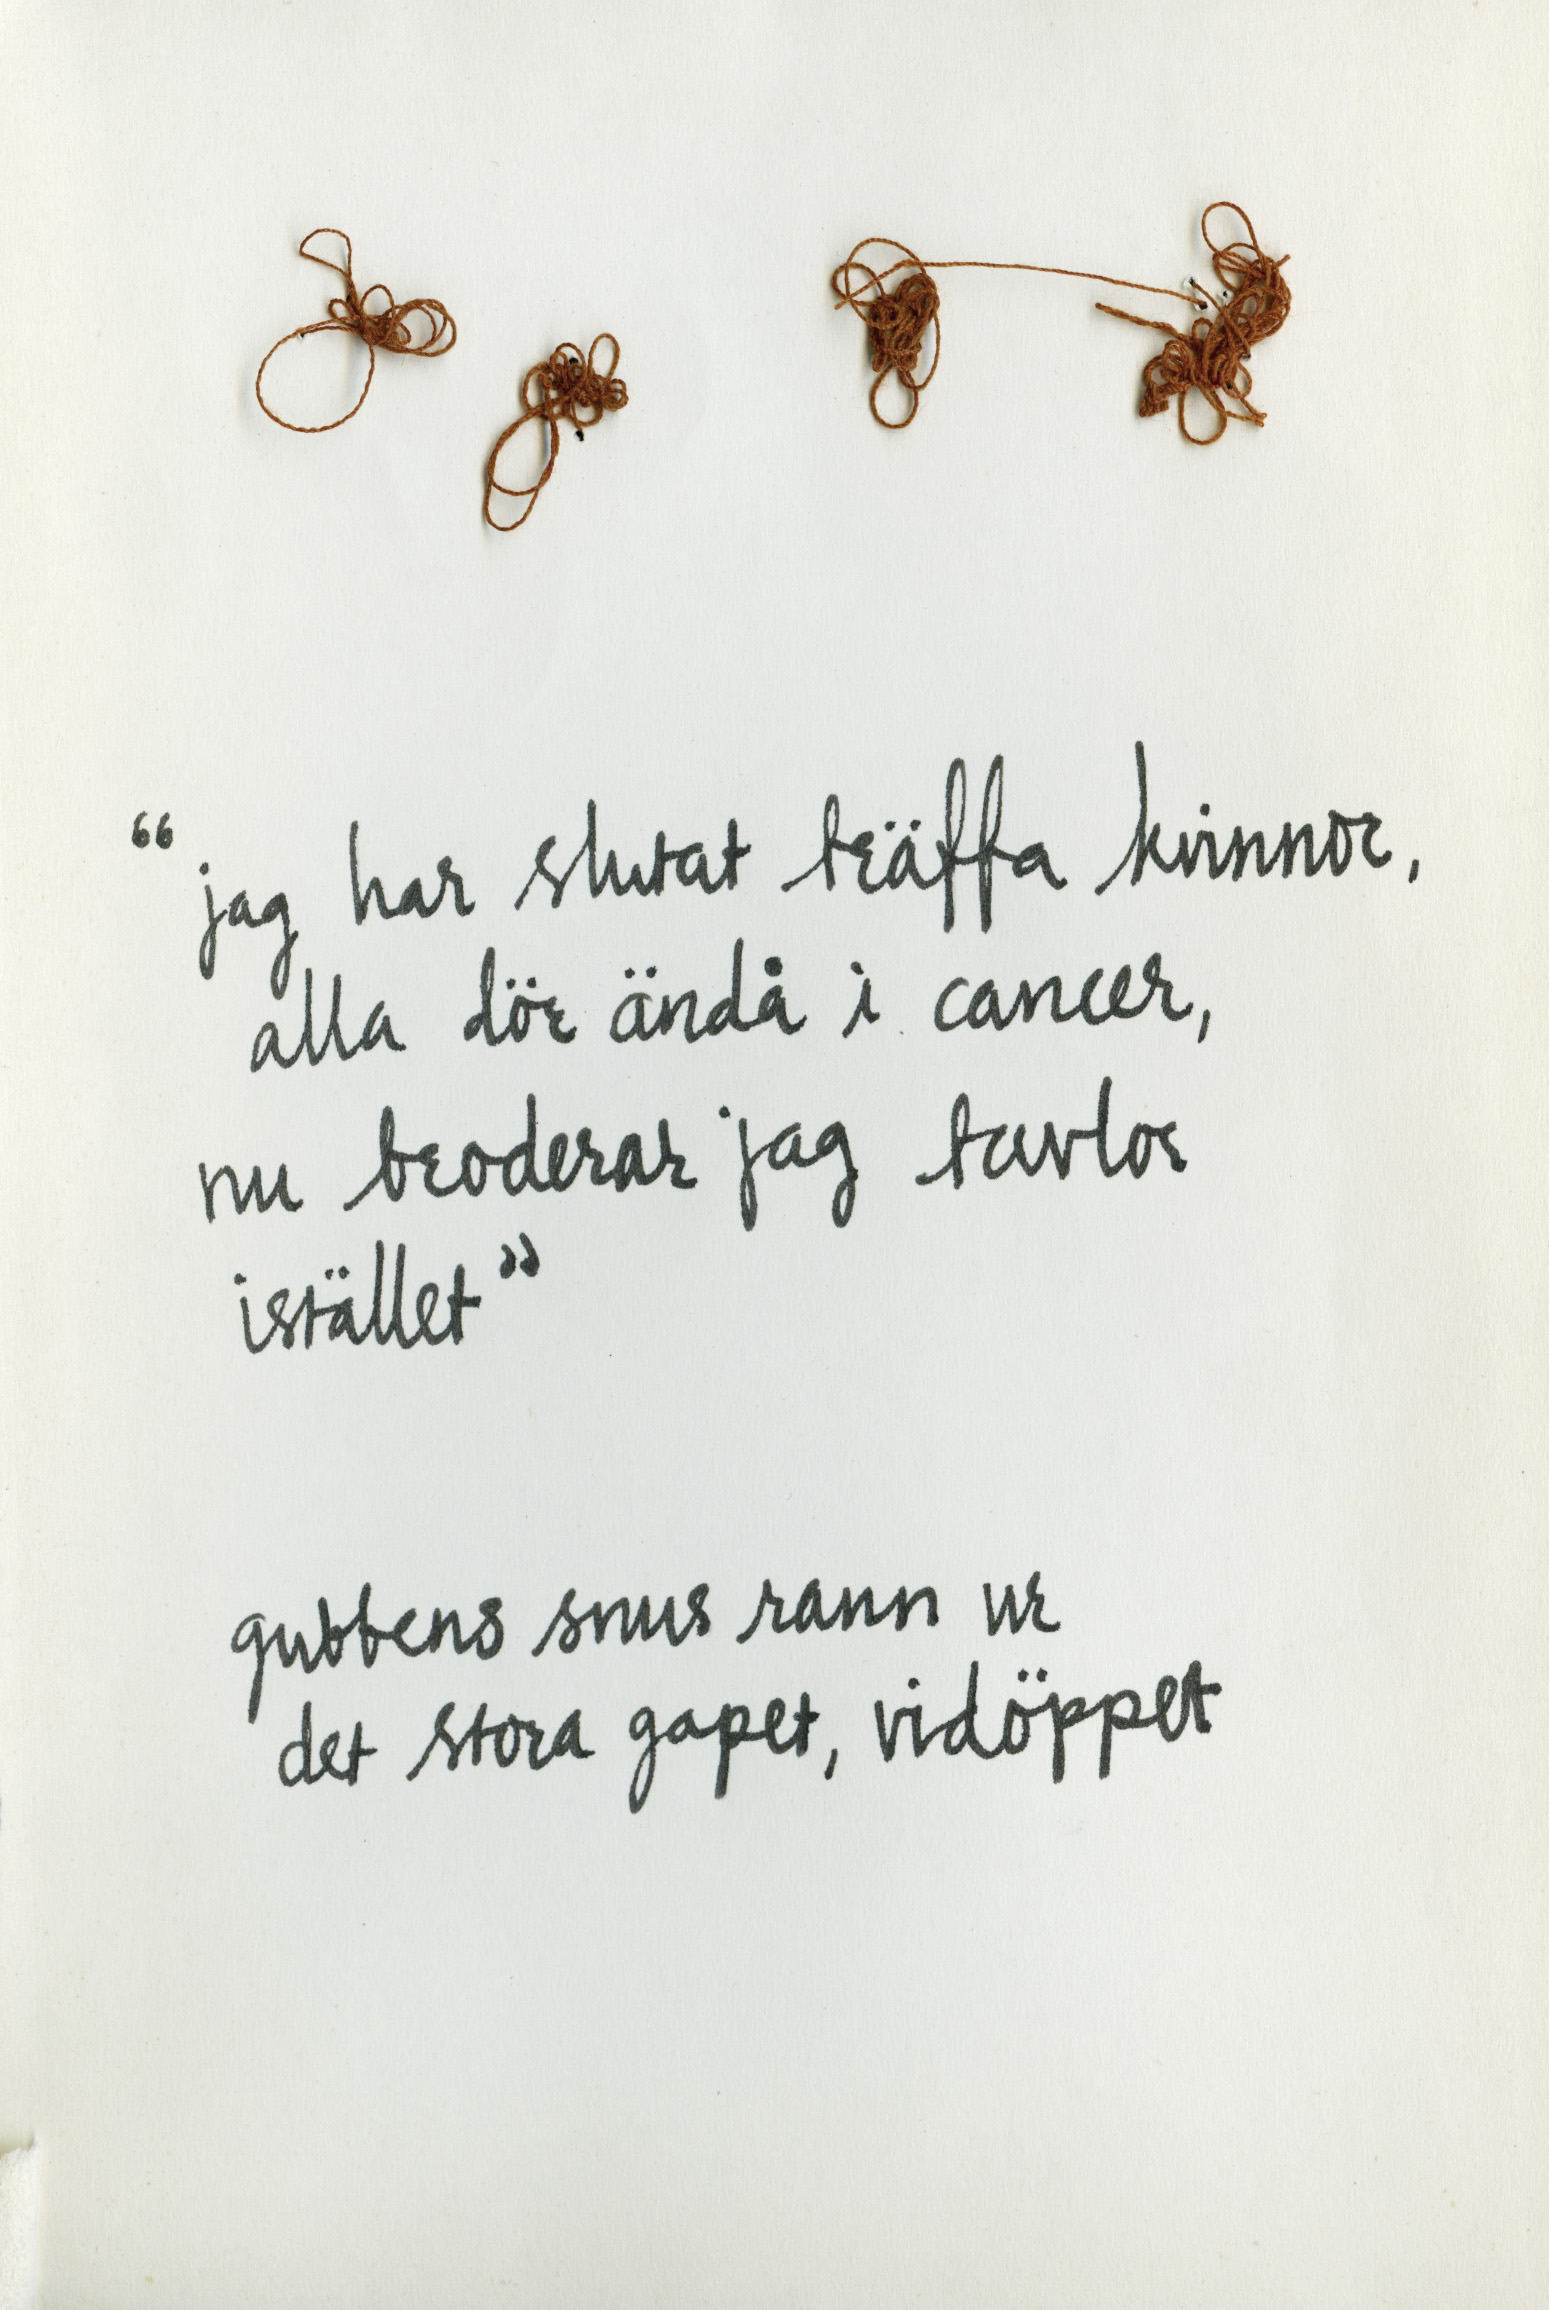 “jag har slutat träffa kvinnor,
alla dör ändå i cancer,
nu broderar jag tavlor
istället”
gubbens snus rann ur
det stora gapet, vidöppet